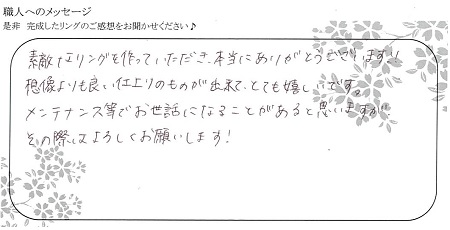 職人へのメッセージ
是非 完成したリングのご感想をお聞かせください♪
素敵なリングを作っていただき、本当にありがとうございます!!
想像よりも良い仕上りのものが出来て、とても嬉しいです。
メンテナンス等でお世話になることがあると思いますが、
その際はよろしくお願いします!